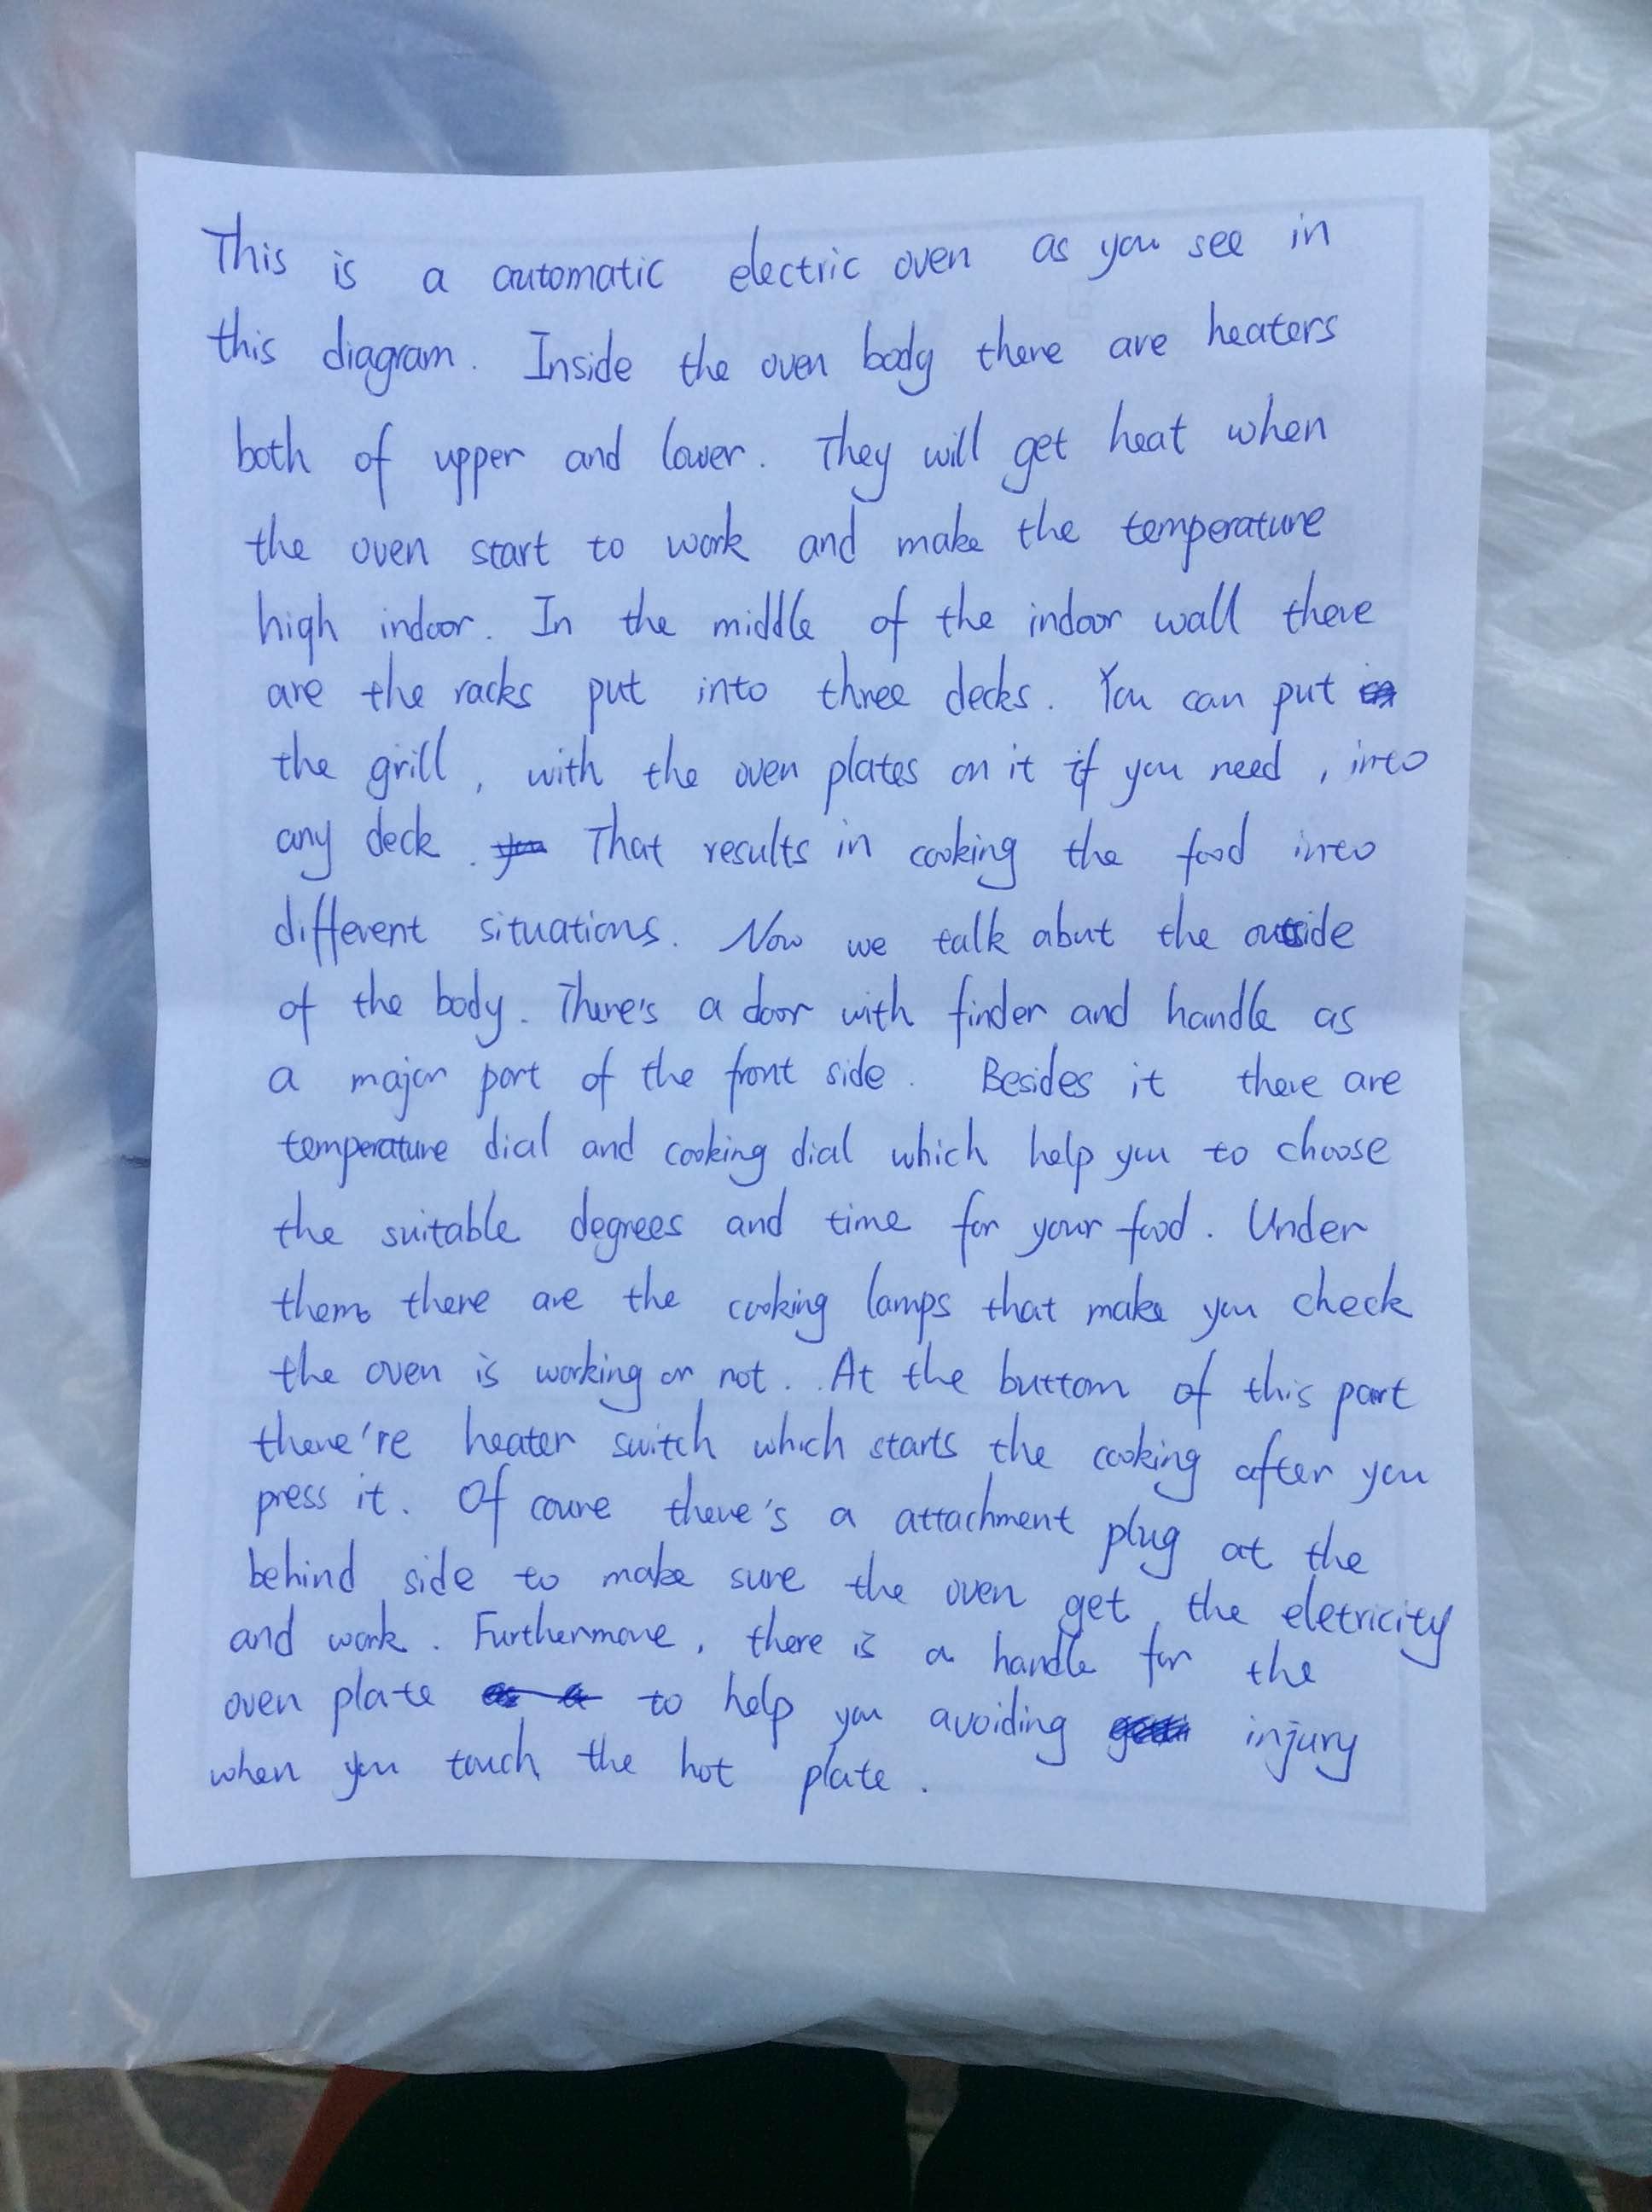 This is a automatic electric oven as you see in
this diagram. Inside the oven body there are heaters
both of upper and lower. They will get heat when
the oven start to work and make the temperature
high indoor. In the middle of the indoor wall there
are the racks put into three decks. You can put
the grill, with the oven plates on it if you need, into
any deck. That results in cooking the food into
different situations. Now we talk abut the outside
of the body. There's a door with finder and handle as
a major part of the front side. Besides it there are
temperature dial and cooking dial which help you to choose
the suitable degrees and time for your food. Under
them there are the cooking lamps that make you check
the oven is working or not. At the buttom of this part
there're heater switch which starts the cooking after you
press it. Of coure there's a attachment plug at the
behind side to make sure the oven get the eletricity
and work. Furthermore, there is a handle for the
oven plate to help you avoiding injury
when you touch the hot plate.